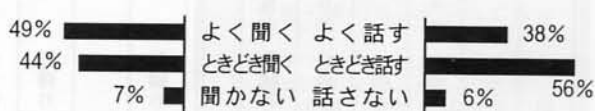 49% よく聞く よく話す 38%
44% ときどき聞く ときどき話す 56%
7% 聞かない 話さない 6%